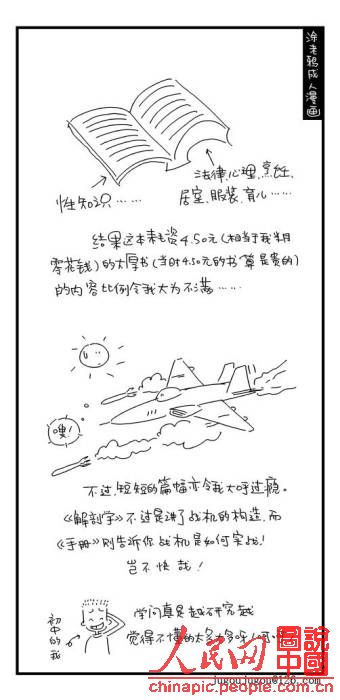 涂老鸦成人漫画
性知识……
法律、心理、烹饪、
居室、服装、育儿……
结果这本耗资4.50元(相当于我半月
零花钱)的大厚书(当时4.50元的书算是贵的)
的内容比例令我大为不满……
嗖!
不过,短短的篇幅亦令我大呼过瘾。
《解剖学》不过是讲了战机的构造,而
《手册》则告诉你战机是如何实战!
岂不快哉!
初中的我
学问真是越研究越
觉得不懂的太多太多呀
人民网
圖說中國
jugoujugou@126.com
chinapic.people.com.cn